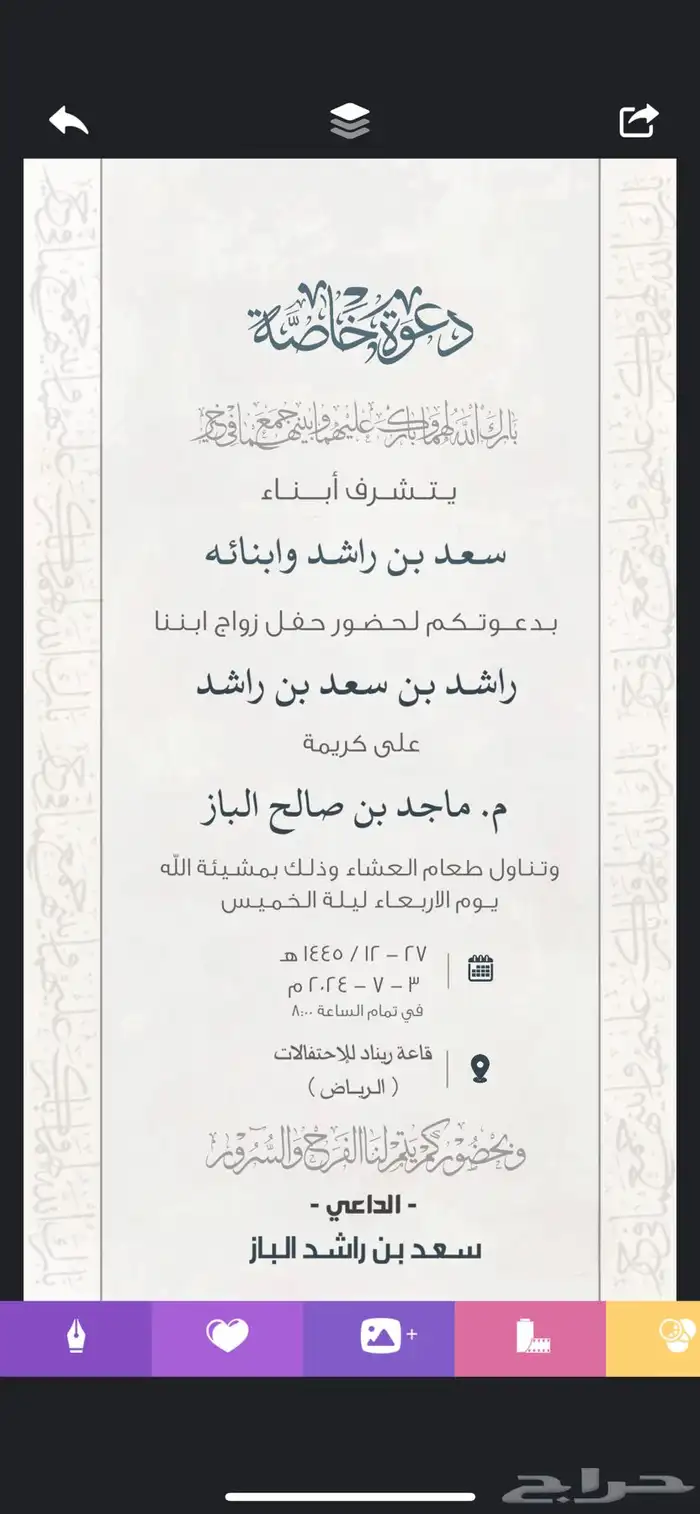 دعوة خاصة
بارك الله لهما وبارك عليهما وجمع بينهما في خير
يتشرف أبناء
سعد بن راشد وابنائه
بدعوتكم لحضور حفل زواج ابننا
راشد بن سعد بن راشد
على كريمة
م. ماجد بن صالح الباز
وتناول طعام العشاء وذلك بمشيئة الله
يوم الاربعاء ليلة الخميس
٢٧ – ١٢ / ١٤٤٥ هـ
٣ – ٧ – ٢٠٢٤ م
في تمام الساعة ٨:٠٠
قاعة ريناد للإحتفالات
( الرياض )
وبحضوركم يتم لنا الفرح والسرور
- الداعي -
سعد بن راشد الباز
حراج